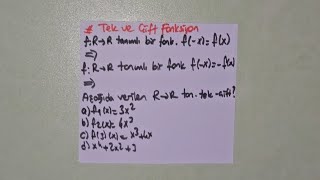 # Tek ve Çift Fonksiyon
f: R→R tanımlı bir fonk. f(-x)=f(x)
⇒
f: R→R tanımlı bir fonk f(-x)=-f(x)
⇒
Aşağıda verilen R→R ton. tek -çift?
a) f₁(x)=3x²
b) f₂(x)=4x³
c) f(3)(x)=x³+4x
d) x⁴+2x²+3